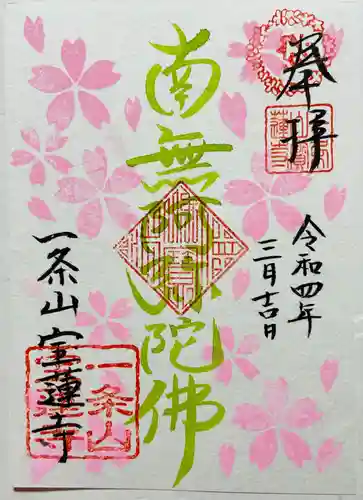 奉拝
令和四年
三月吉日
南無阿弥陀佛
一条山宝蓮寺
一条山